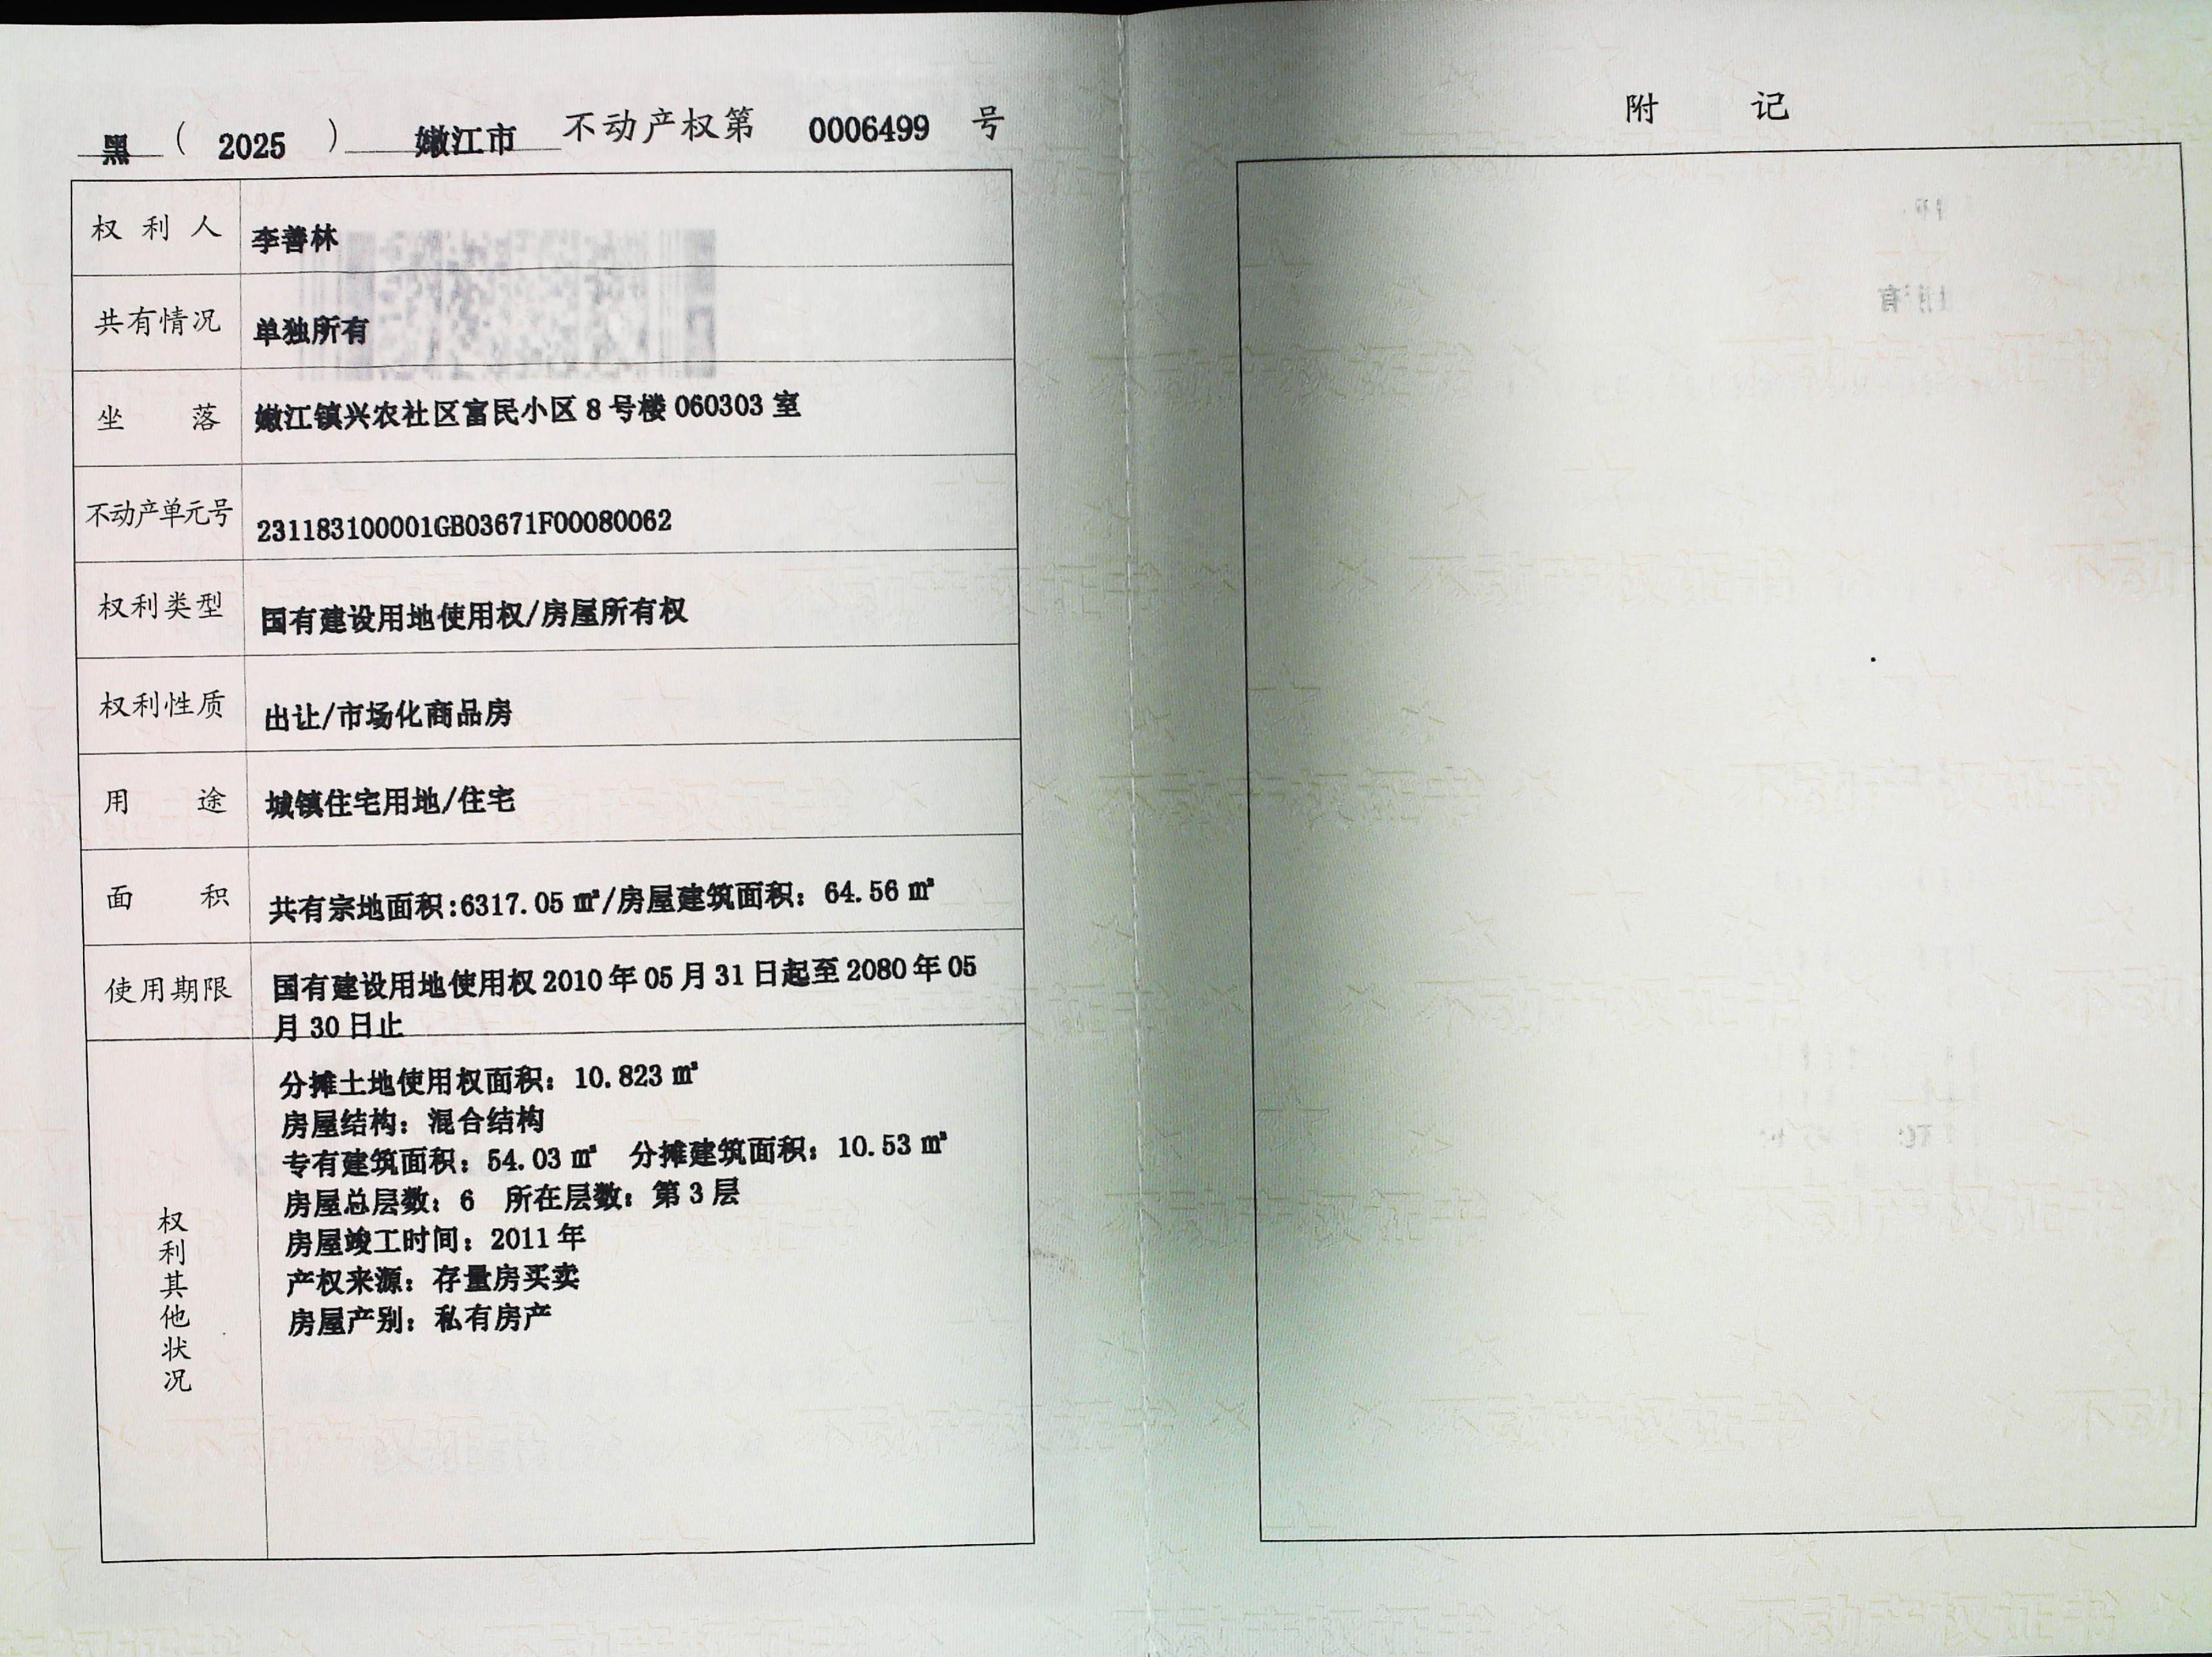 黑 （ 2025 ） 嫩江市 不动产权第 0006499 号
权利人 李善林
共有情况 单独所有
坐落 嫩江镇兴农社区富民小区 8 号楼 060303 室
不动产单元号 231183100001GB03671F00080062
权利类型 国有建设用地使用权/房屋所有权
权利性质 出让/市场化商品房
用途 城镇住宅用地/住宅
面积 共有宗地面积:6317.05 ㎡/房屋建筑面积：64.56 ㎡
使用期限 国有建设用地使用权 2010 年 05 月 31 日起至 2080 年 05
月 30 日止
权利其他状况
分摊土地使用权面积：10.823 ㎡
房屋结构：混合结构
专有建筑面积：54.03 ㎡ 分摊建筑面积：10.53 ㎡
房屋总层数：6 所在层数：第 3 层
房屋竣工时间：2011 年
产权来源：存量房买卖
房屋产别：私有房产
附记